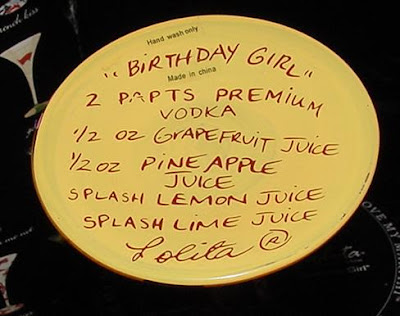 Hand wash only
"BIRTHDAY GIRL"
Made in china
2 PARTS PREMIUM
VODKA
1/2 OZ GRAPEFRUIT JUICE
1/2 OZ PINEAPPLE
JUICE
SPLASH LEMON JUICE
SPLASH LIME JUICE
Lolita ®